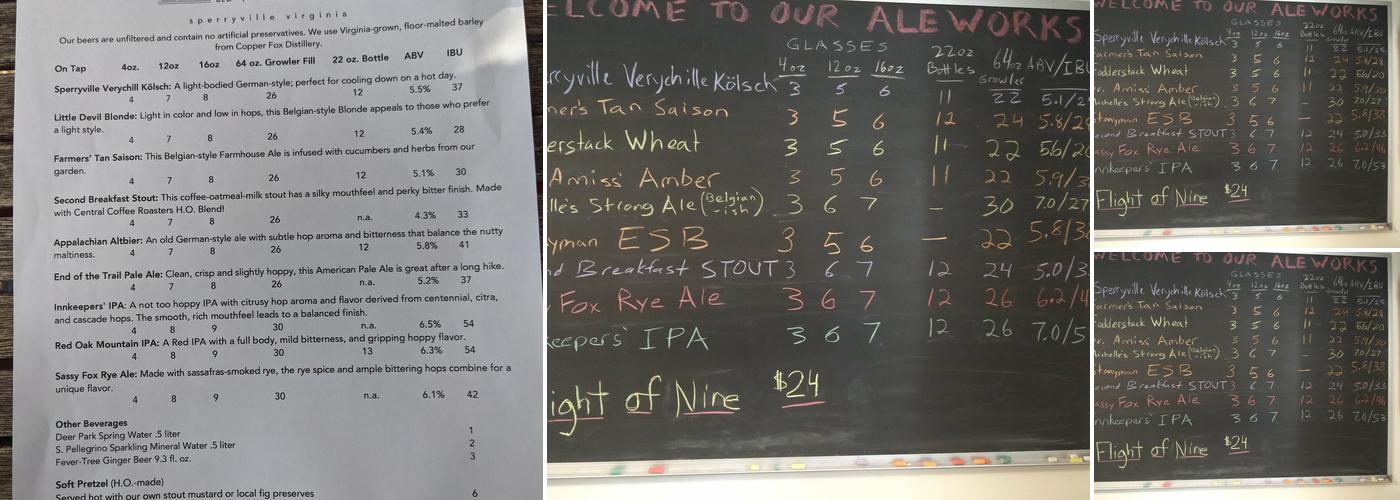 sperryville virginia
Our beers are unfiltered and contain no artificial preservatives. We use Virginia-grown, floor-malted barley
from Copper Fox Distillery.
On Tap 4oz. 12oz 16oz 64 oz. Growler Fill 22 oz. Bottle ABV IBU
Sperryville Verychill Kölsch: A light-bodied German-style; perfect for cooling down on a hot day.
4 7 8 26 12 5.5% 37
Little Devil Blonde: Light in color and low in hops, this Belgian-style Blonde appeals to those who prefer
a light style.
4 7 8 26 12 5.4% 28
Farmers' Tan Saison: This Belgian-style Farmhouse Ale is infused with cucumbers and herbs from our
garden.
4 7 8 26 12 5.1% 30
Second Breakfast Stout: This coffee-oatmeal-milk stout has a silky mouthfeel and perky bitter finish. Made
with Central Coffee Roasters H.O. Blend!
4 7 8 26 n.a. 4.3% 33
Appalachian Altbier: An old German-style ale with subtle hop aroma and bitterness that balance the nutty
maltiness.
4 7 8 26 12 5.8% 41
End of the Trail Pale Ale: Clean, crisp and slightly hoppy, this American Pale Ale is great after a long hike.
4 7 8 26 n.a. 5.2% 37
Innkeepers' IPA: A not too hoppy IPA with citrusy hop aroma and flavor derived from centennial, citra,
and cascade hops. The smooth, rich mouthfeel leads to a balanced finish.
4 8 9 30 n.a. 6.5% 54
Red Oak Mountain IPA: A Red IPA with a full body, mild bitterness, and gripping hoppy flavor.
4 8 9 30 13 6.3% 54
Sassy Fox Rye Ale: Made with sassafras-smoked rye, the rye spice and ample bittering hops combine for a
unique flavor.
4 8 9 30 n.a. 6.1% 42
Other Beverages
Deer Park Spring Water .5 liter 1
S. Pellegrino Sparkling Mineral Water .5 liter 2
Fever-Tree Ginger Beer 9.3 fl. oz. 3
Soft Pretzel (H.O.-made)
Served hot with our own stout mustard or local fig preserves 6
ELCOME TO OUR ALE WORKS
GLASSES
4oz 12oz 16oz 22oz Bottles 64oz Growler ABV/IBU
rryville Verychille Kölsch 3 5 6 11 22 5.1/2
mer's Tan Saison 3 5 6 12 24 5.8/28
erstack Wheat 3 5 6 11 22 5.6/20
Amiss' Amber 3 5 6 11 22 5.9/3
lle's Strong Ale (Belgian-ish) 3 6 7 – 30 7.0/27
yman ESB 3 5 6 — 22 5.8/38
d Breakfast STOUT 3 6 7 12 24 5.0/3
Fox Rye Ale 3 6 7 12 26 6.2/4
keepers' IPA 3 6 7 12 26 7.0/5
ight of Nine $24
WELCOME TO OUR ALE WORKS
GLASSES
4oz 12oz 16oz 22oz Bottles 64oz Growler ABV/IBU
Sperryville Verychille Kölsch 3 5 6 11 22 5.1/25
armer's Tan Saison 3 5 6 12 24 5.8/28
odderstack Wheat 3 5 6 11 22 5.6/20
r. Amiss' Amber 3 5 6 11 22 5.9/30
ichelle's Strong Ale (Belgian-ish) 3 6 7 – 30 7.0/27
tonyman ESB 3 5 6 — 22 5.8/38
econd Breakfast STOUT 3 6 7 12 24 5.0/33
assy Fox Rye Ale 3 6 7 12 26 6.2/46
nnkeepers' IPA 3 6 7 12 26 7.0/53
Flight of Nine $24
WELCOME TO OUR ALE WORKS
GLASSES
4oz 12oz 16oz 22oz Bottles 64oz Growler ABV/IBU
Sperryville Verychille Kölsch 3 5 6 11 22 5.1/25
armer's Tan Saison 3 5 6 12 24 5.8/28
odderstack Wheat 3 5 6 11 22 5.6/20
r. Amiss' Amber 3 5 6 11 22 5.9/30
ichelle's Strong Ale (Belgian-ish) 3 6 7 – 30 7.0/27
tonyman ESB 3 5 6 — 22 5.8/38
econd Breakfast STOUT 3 6 7 12 24 5.0/33
assy Fox Rye Ale 3 6 7 12 26 6.2/46
nnkeepers' IPA 3 6 7 12 26 7.0/53
Flight of Nine $24